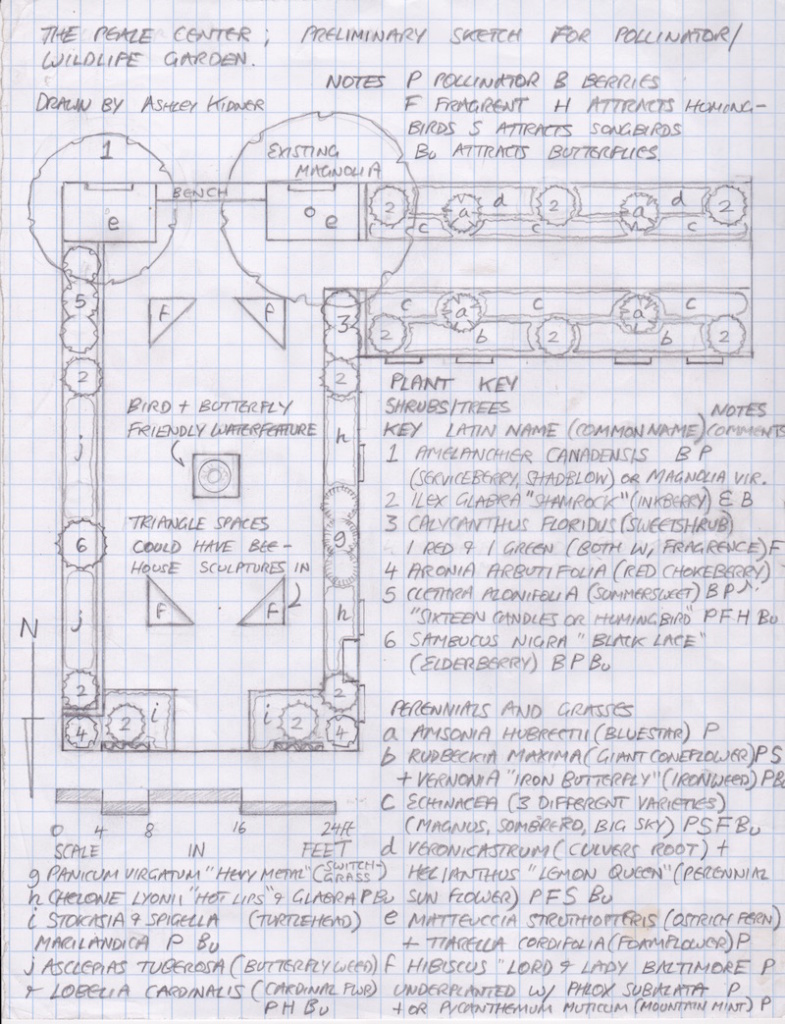 THE PEALE CENTER; PRELIMINARY SKETCH FOR POLLINATOR/
WILDLIFE GARDEN.
NOTES P POLLINATOR B BERRIES
DRAWN BY ASHLEY KIDNER
F FRAGRENT H ATTRACTS HUMING-
BIRDS S ATTRACTS SONGBIRDS
Bu ATTRACTS BUTTERFLIES.
1
EXISTING
MAGNOLIA
BENCH
e
e
2 a d 2 a d 2
c c c
5
F F
3
c a c a c
2 b 2 b 2
2
2
BIRD + BUTTERFLY
FRIENDLY WATERFEATURE
j
h
6
TRIANGLE SPACES
COULD HAVE BEE-
HOUSE SCULPTURES IN
g
j
F F
h
N
2
2
4 2 i
i 2 4
0 4 8 16 24FT
SCALE IN FEET
PLANT KEY
SHRUBS/TREES NOTES
KEY LATIN NAME (COMMON NAME) COMMENTS
1 AMELANCHIER CANADENSIS B P
(SERVICEBERRY, SHADBLOW) OR MAGNOLIA VIR.
2 ILEX GLABRA "SHAMROCK" (INKBERRY) E B
3 CALYCANTHUS FLORIDUS (SWEETSHRUB)
1 RED & 1 GREEN (BOTH W, FRAGRENCE) F
4 ARONIA ARBUTIFOLIA (RED CHOKEBERRY)
5 CLETHRA ALONIFOLIA (SUMMERSWEET) B P
"SIXTEEN CANDLES OR HUMINGBIRD" P F H Bu
6 SAMBUCUS NIGRA "BLACK LACE"
(ELDERBERRY) B P Bu
PERENNIALS AND GRASSES
a AMSONIA HUBRECTII (BLUESTAR) P
b RUDBECKIA MAXIMA (GIANT CONEFLOWER) P S
+ VERNONIA "IRON BUTTERFLY" (IRONWEED) P Bu
C ECHINACEA (3 DIFFERENT VARIETIES)
(MAGNUS, SOMBRERO, BIG SKY) P S F Bu
d VERONICASTRUM (CULVERS ROOT) +
HELIANTHUS "LEMON QUEEN" (PERENNIAL
SUN FLOWER) P F S Bu
e MATTEUCCIA STRUTHIOPTERIS (OSTRICH FERN)
+ TIARELLA CORDIFOLIA (FOAMFLOWER) P
F HIBISCUS "LORD & LADY BALTIMORE P
UNDERPLANTED W/ PHLOX SUBALATA P
+ OR PYCANTHEMUM MUTICUM (MOUNTAIN MINT) P
g PANICUM VIRGATUM "HEVY METAL" (SWITCH-
GRASS
h CHELONE LYONII "HOT LIPS" & GLABRA P Bu
i STOKASIA & SPIGELLA (TURTLEHEAD)
MARILANDICA P Bu
j ASCLEPIAS TUBEROSA (BUTTERFLY WEED)
& LOBELIA CARDINALIS (CARDINAL FLWR)
P H Bu